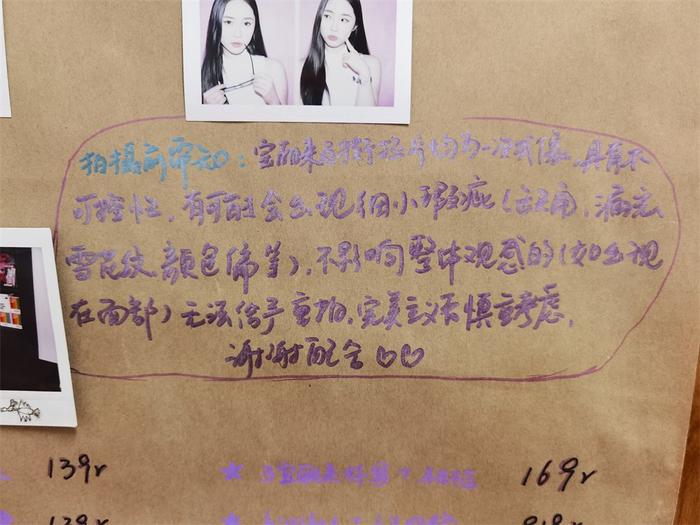 拍摄前需知：宝丽来与撕拉片均为一次成像，具有不
可控性，有可能会出现细小瑕疵（缺角，漏液，
雪花纹，颜色偏等），不影响整体观感的（如出现
在面部）无法给予重拍，完美主义者慎重考虑，
谢谢配合♡♡
139r
★ 3宝丽来 + 169r
139r